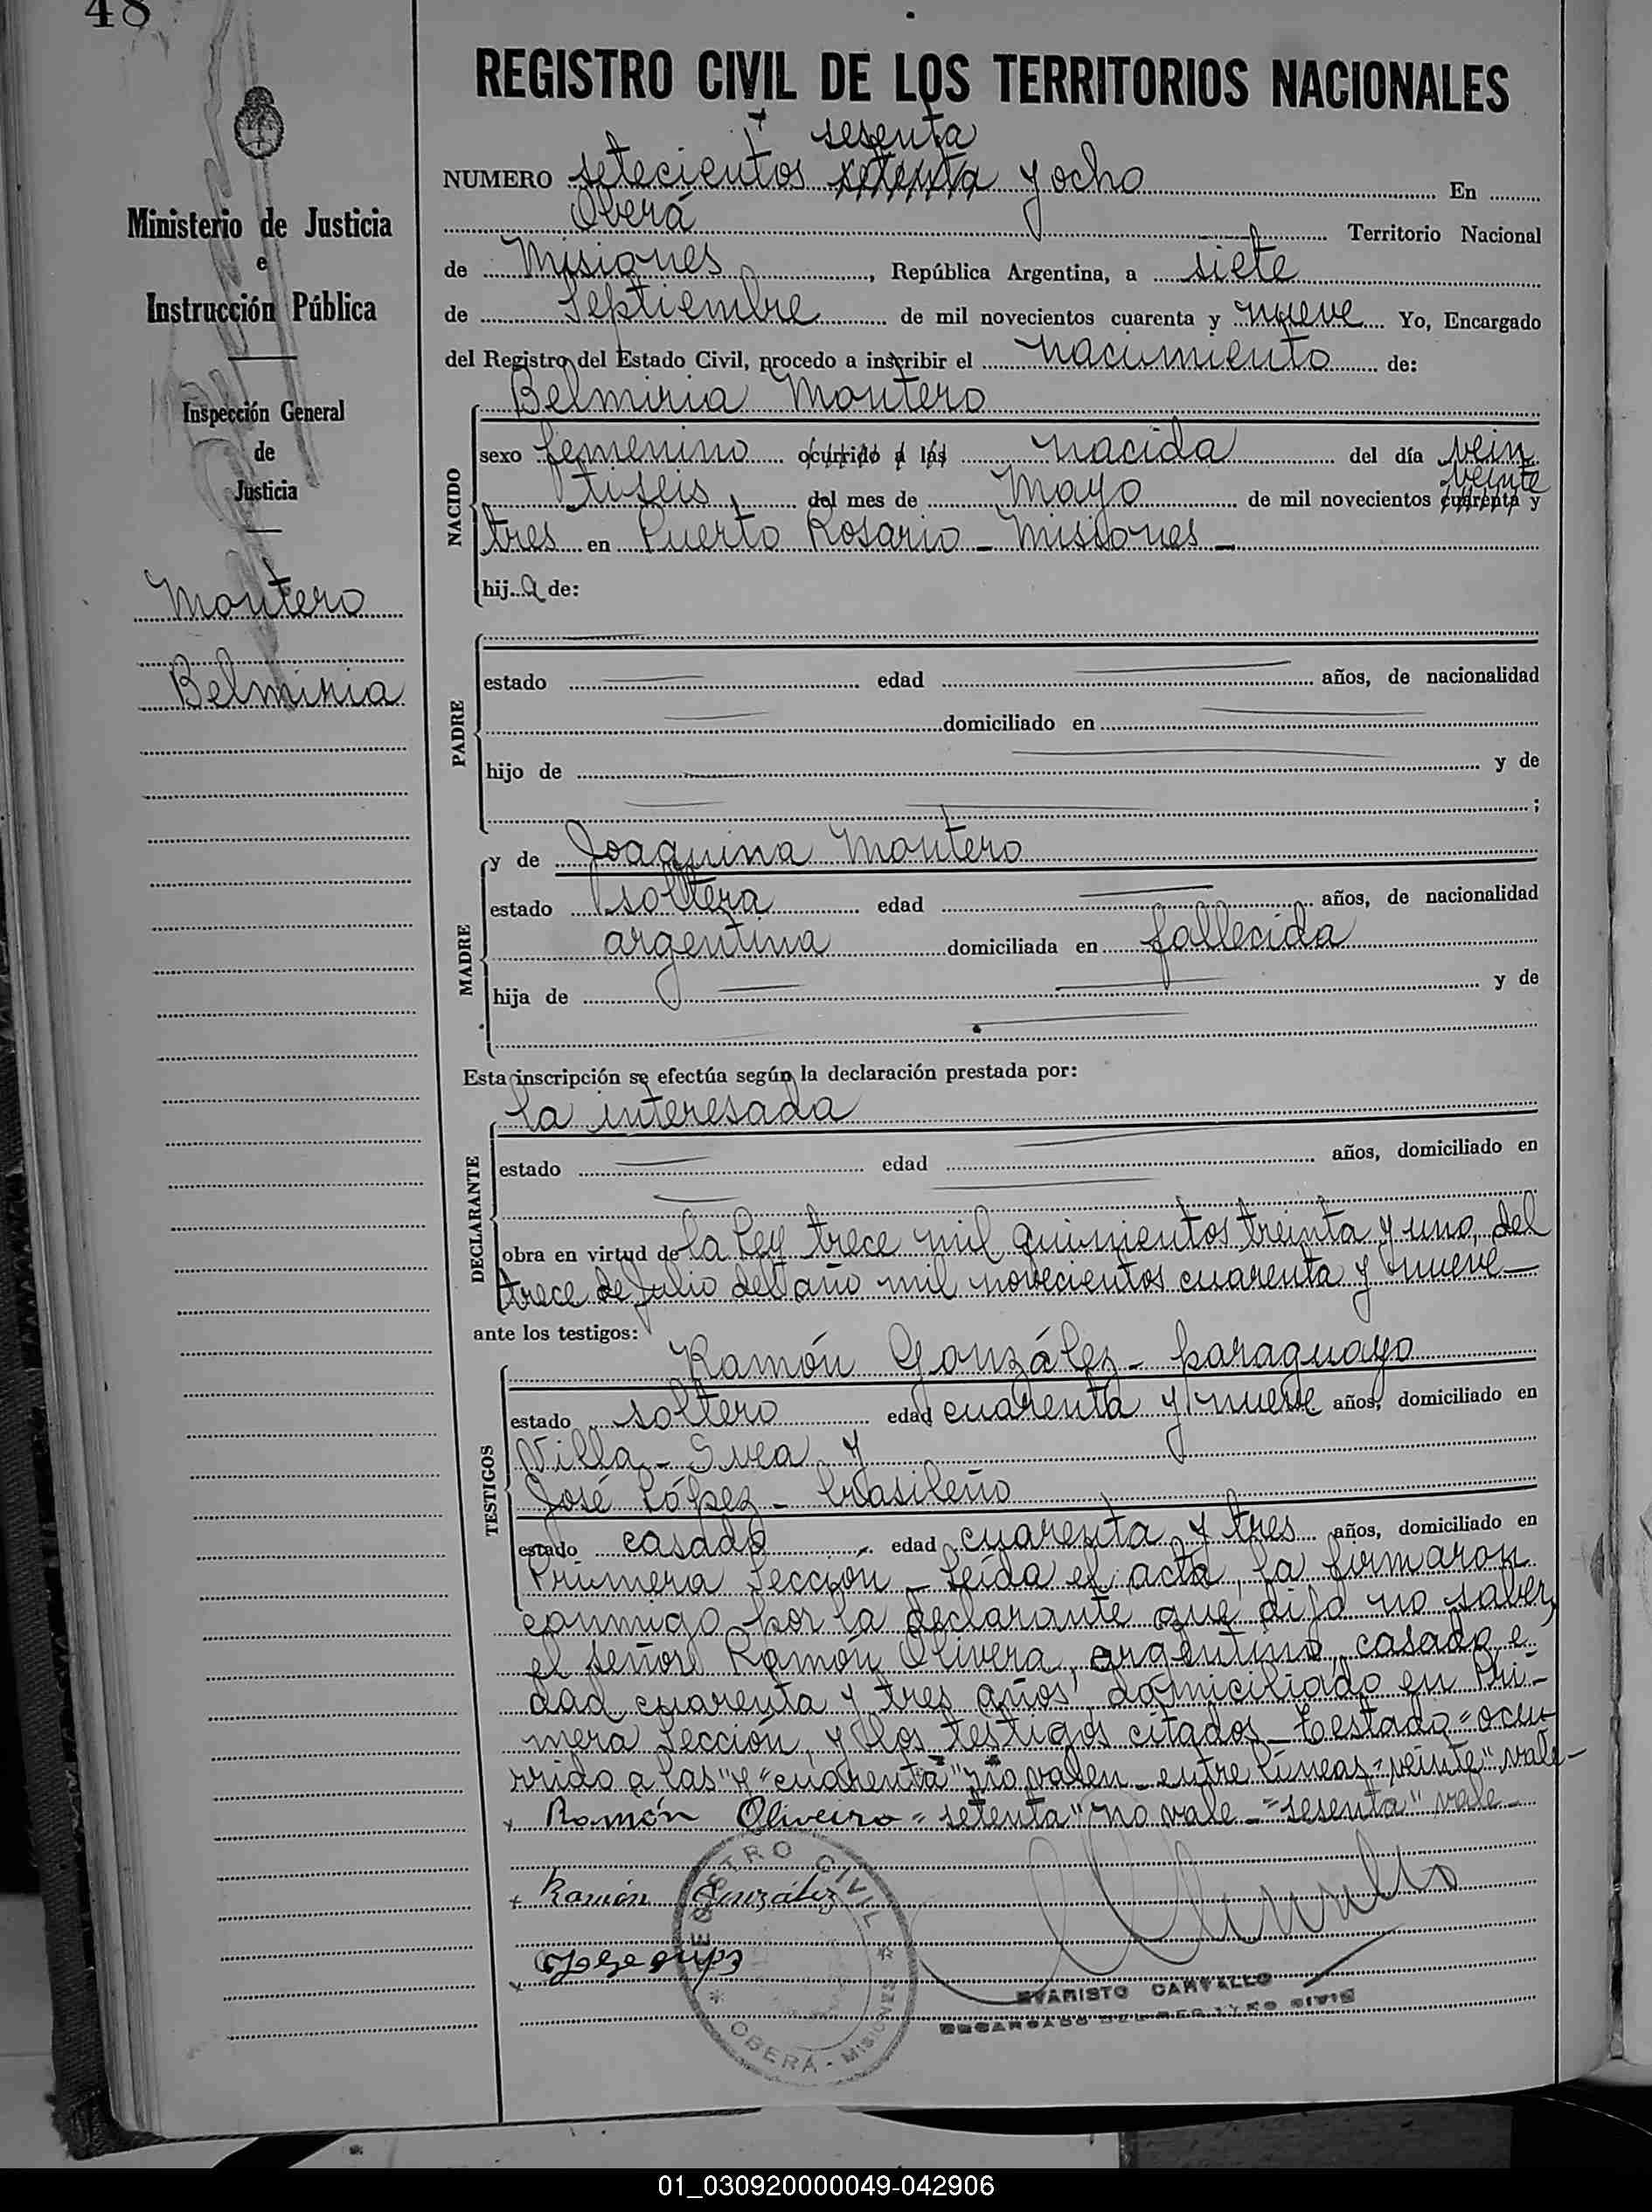 48
REGISTRO CIVIL DE LOS TERRITORIOS NACIONALES
sesenta
NUMERO setecientos setenta y ocho En
Oberá Territorio Nacional
de Misiones, República Argentina, a siete
de Septiembre de mil novecientos cuarenta y nueve Yo, Encargado
del Registro del Estado Civil, procedo a inscribir el nacimiento de:
Ministerio de Justicia
e
Instrucción Pública
Inspección General
de
Justicia
Montero
Belminia
NACIDO
Belminia Montero
sexo femenino ocurrido a las nacida del día vein
veinte
tiseis, del mes de Mayo de mil novecientos cuarenta y
tres en Puerto Rosario - Misiones -
hija de:
PADRE
estado edad años, de nacionalidad
domiciliado en
hijo de y de
;
MADRE
y de Joaquina Montero
estado soltera edad años, de nacionalidad
argentina domiciliada en fallecida
hija de y de
Esta inscripción se efectúa según la declaración prestada por:
DECLARANTE
la interesada
estado edad años, domiciliado en
obra en virtud de la Ley trece mil quinientos treinta y uno, del
trece de Julio del año mil novecientos cuarenta y nueve -
ante los testigos:
TESTIGOS
Ramón González - paraguayo
estado soltero edad cuarenta y nueve años, domiciliado en
Villa - Svea y
José López - brasileño
estado casado edad cuarenta y tres años, domiciliado en
Primera Sección - Leída el acta, la firmaron
conmigo por la declarante que dijo no saber,
el señor Ramón Olivera, argentino, casado e
dad cuarenta y tres años domiciliado en Pri-
mera Sección, y los testigos citados - Testado = ocu
rrido a las" y "cuarenta" no valen - entre líneas = veinte" vale -
x Ramón Oliveira = setenta" no vale - = sesenta" vale -
x Ramón González
x
REGISTRO CIVIL
* OBERÁ - MISIONES *
EVARISTO CARVALLO
ENCARGADO DEL REGISTRO CIVIL
01_030920000049-042906